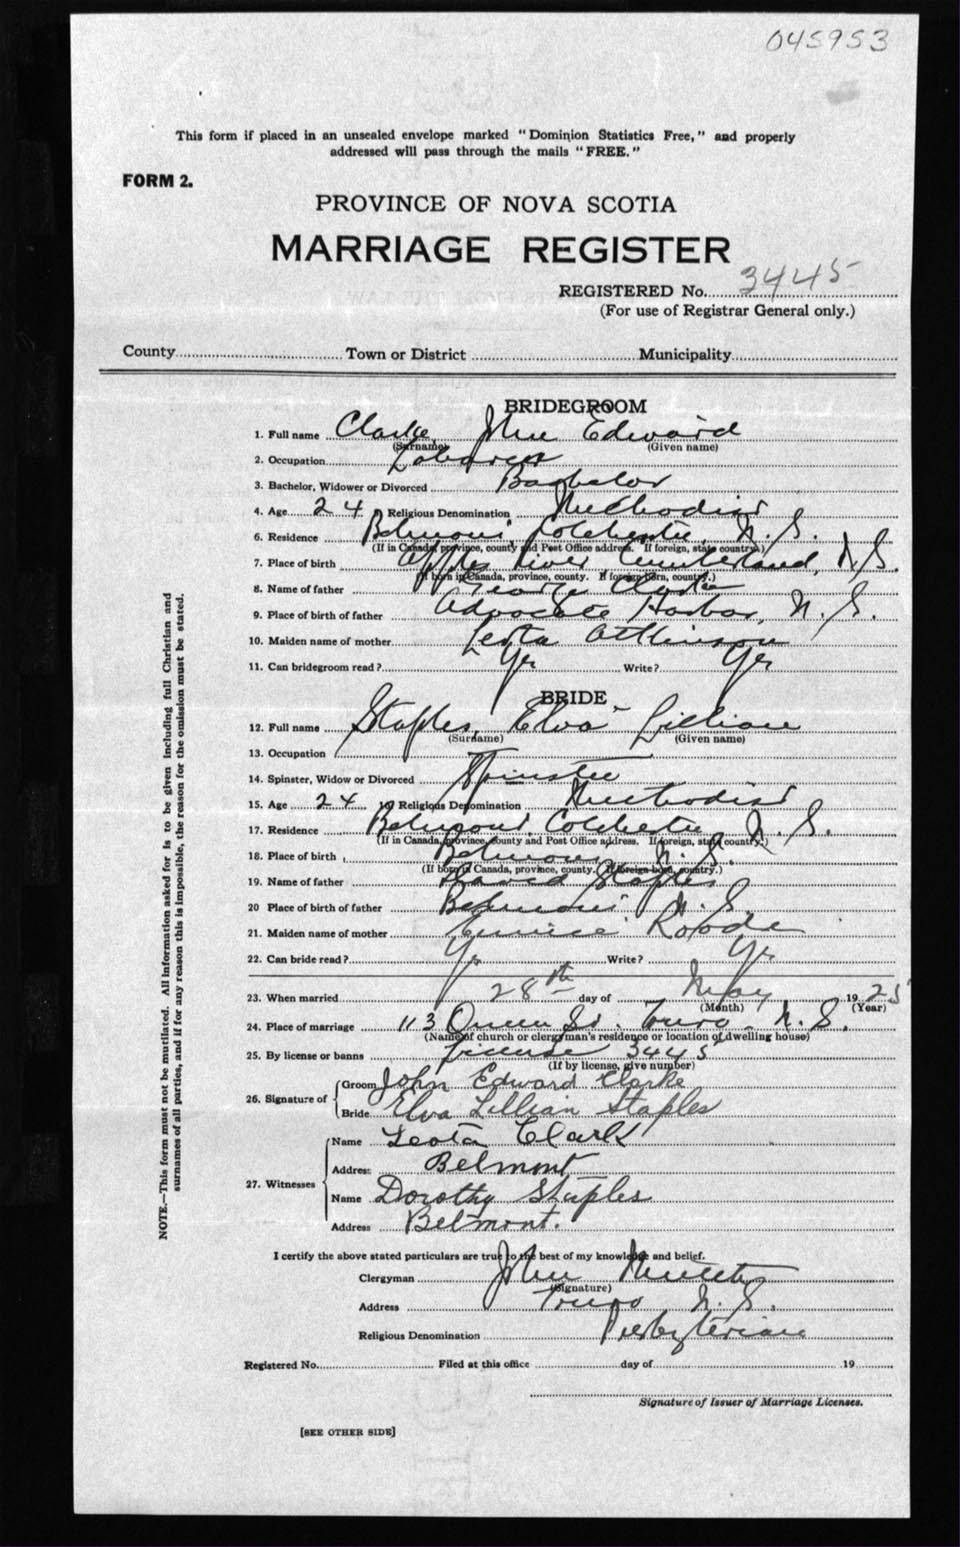 045953
This form if placed in an unsealed envelope marked "Dominion Statistics Free," and properly
addressed will pass through the mails "FREE."
FORM 2.
PROVINCE OF NOVA SCOTIA
MARRIAGE REGISTER
REGISTERED No. 3445
(For use of Registrar General only.)
County Town or District Municipality
BRIDEGROOM
1. Full name Clarke, John Edward
(Surname) (Given name)
2. Occupation Laborer
3. Bachelor, Widower or Divorced Bachelor
4. Age 24 Religious Denomination Methodist
6. Residence Belmont, Colchester, N. S.
(If in Canada, province, county and Post Office address. If foreign, state country.)
7. Place of birth Apple River Cumberland, N.S.
(If born in Canada, province, county. If foreign born, country.)
8. Name of father George Clarke
9. Place of birth of father Advocate Harbor, N. S.
10. Maiden name of mother Leota Attkinson
11. Can bridegroom read? Yes Write? Yes
BRIDE
12. Full name Staples, Elva Lillian
(Surname) (Given name)
13. Occupation
14. Spinster, Widow or Divorced Spinster
15. Age 24 16 Religious Denomination Methodist
17. Residence Belmont, Colchester, N. S.
(If in Canada, province, county and Post Office address. If foreign, state country.)
18. Place of birth Belmont N. S.
(If born in Canada, province, county. If foreign born, country.)
19. Name of father David Staples
20 Place of birth of father Belmont N. S.
21. Maiden name of mother Eunice
22. Can bride read? Yes Write? Yes
23. When married 28th day of May 1925
(Month) (Year)
24. Place of marriage 113 Queen St. Truro N. S.
(Name of church or clergyman's residence or location of dwelling house)
25. By license or banns License 3445
(If by license, give number)
26. Signature of Groom John Edward Clarke
Bride Elva Lillian Staples
27. Witnesses Name Leota Clark
Address Belmont
Name Dorothy Staples
Address Belmont.
I certify the above stated particulars are true to the best of my knowledge and belief.
Clergyman John
(Signature)
Address Truro N. S.
Religious Denomination Presbyterian
Registered No. Filed at this office day of 19
Signature of Issuer of Marriage Licenses.
[SEE OTHER SIDE]
NOTE.—This form must not be mutilated. All information asked for is to be given including full Christian and
surnames of all parties, and if for any reason this is impossible, the reason for the omission must be stated.